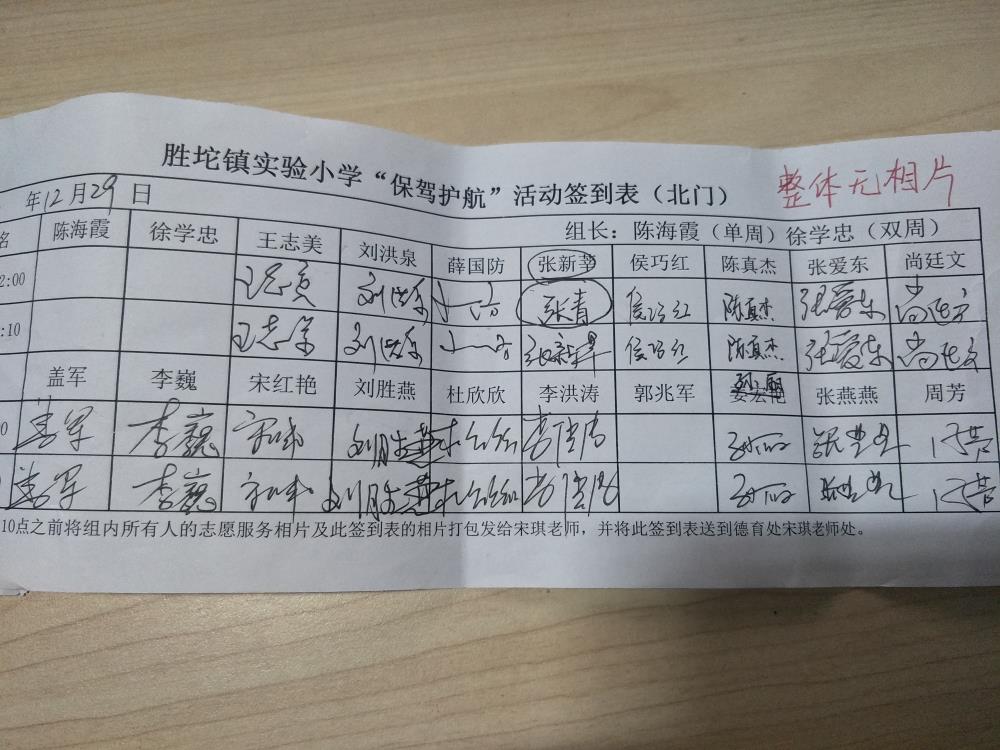 胜坨镇实验小学“保驾护航”活动签到表（北门）
整体无相片
年12月29日
组长：陈海霞（单周）徐学忠（双周）
名 陈海霞 徐学忠 王志美 刘洪泉 薛国防 张新苹 侯巧红 陈真杰 张爱东 尚廷文
2:00 刘洪泉 张青 侯巧红 陈真杰 张爱东 尚廷文
:10 王志美 刘洪泉 张新苹 侯巧红 陈真杰 张爱东 尚廷文
盖军 李巍 宋红艳 刘胜燕 杜欣欣 李洪涛 郭兆军 张燕燕 周芳
0 盖军 李巍 刘胜燕
盖军 李巍 刘胜燕
10点之前将组内所有人的志愿服务相片及此签到表的相片打包发给宋琪老师，并将此签到表送到德育处宋琪老师处。